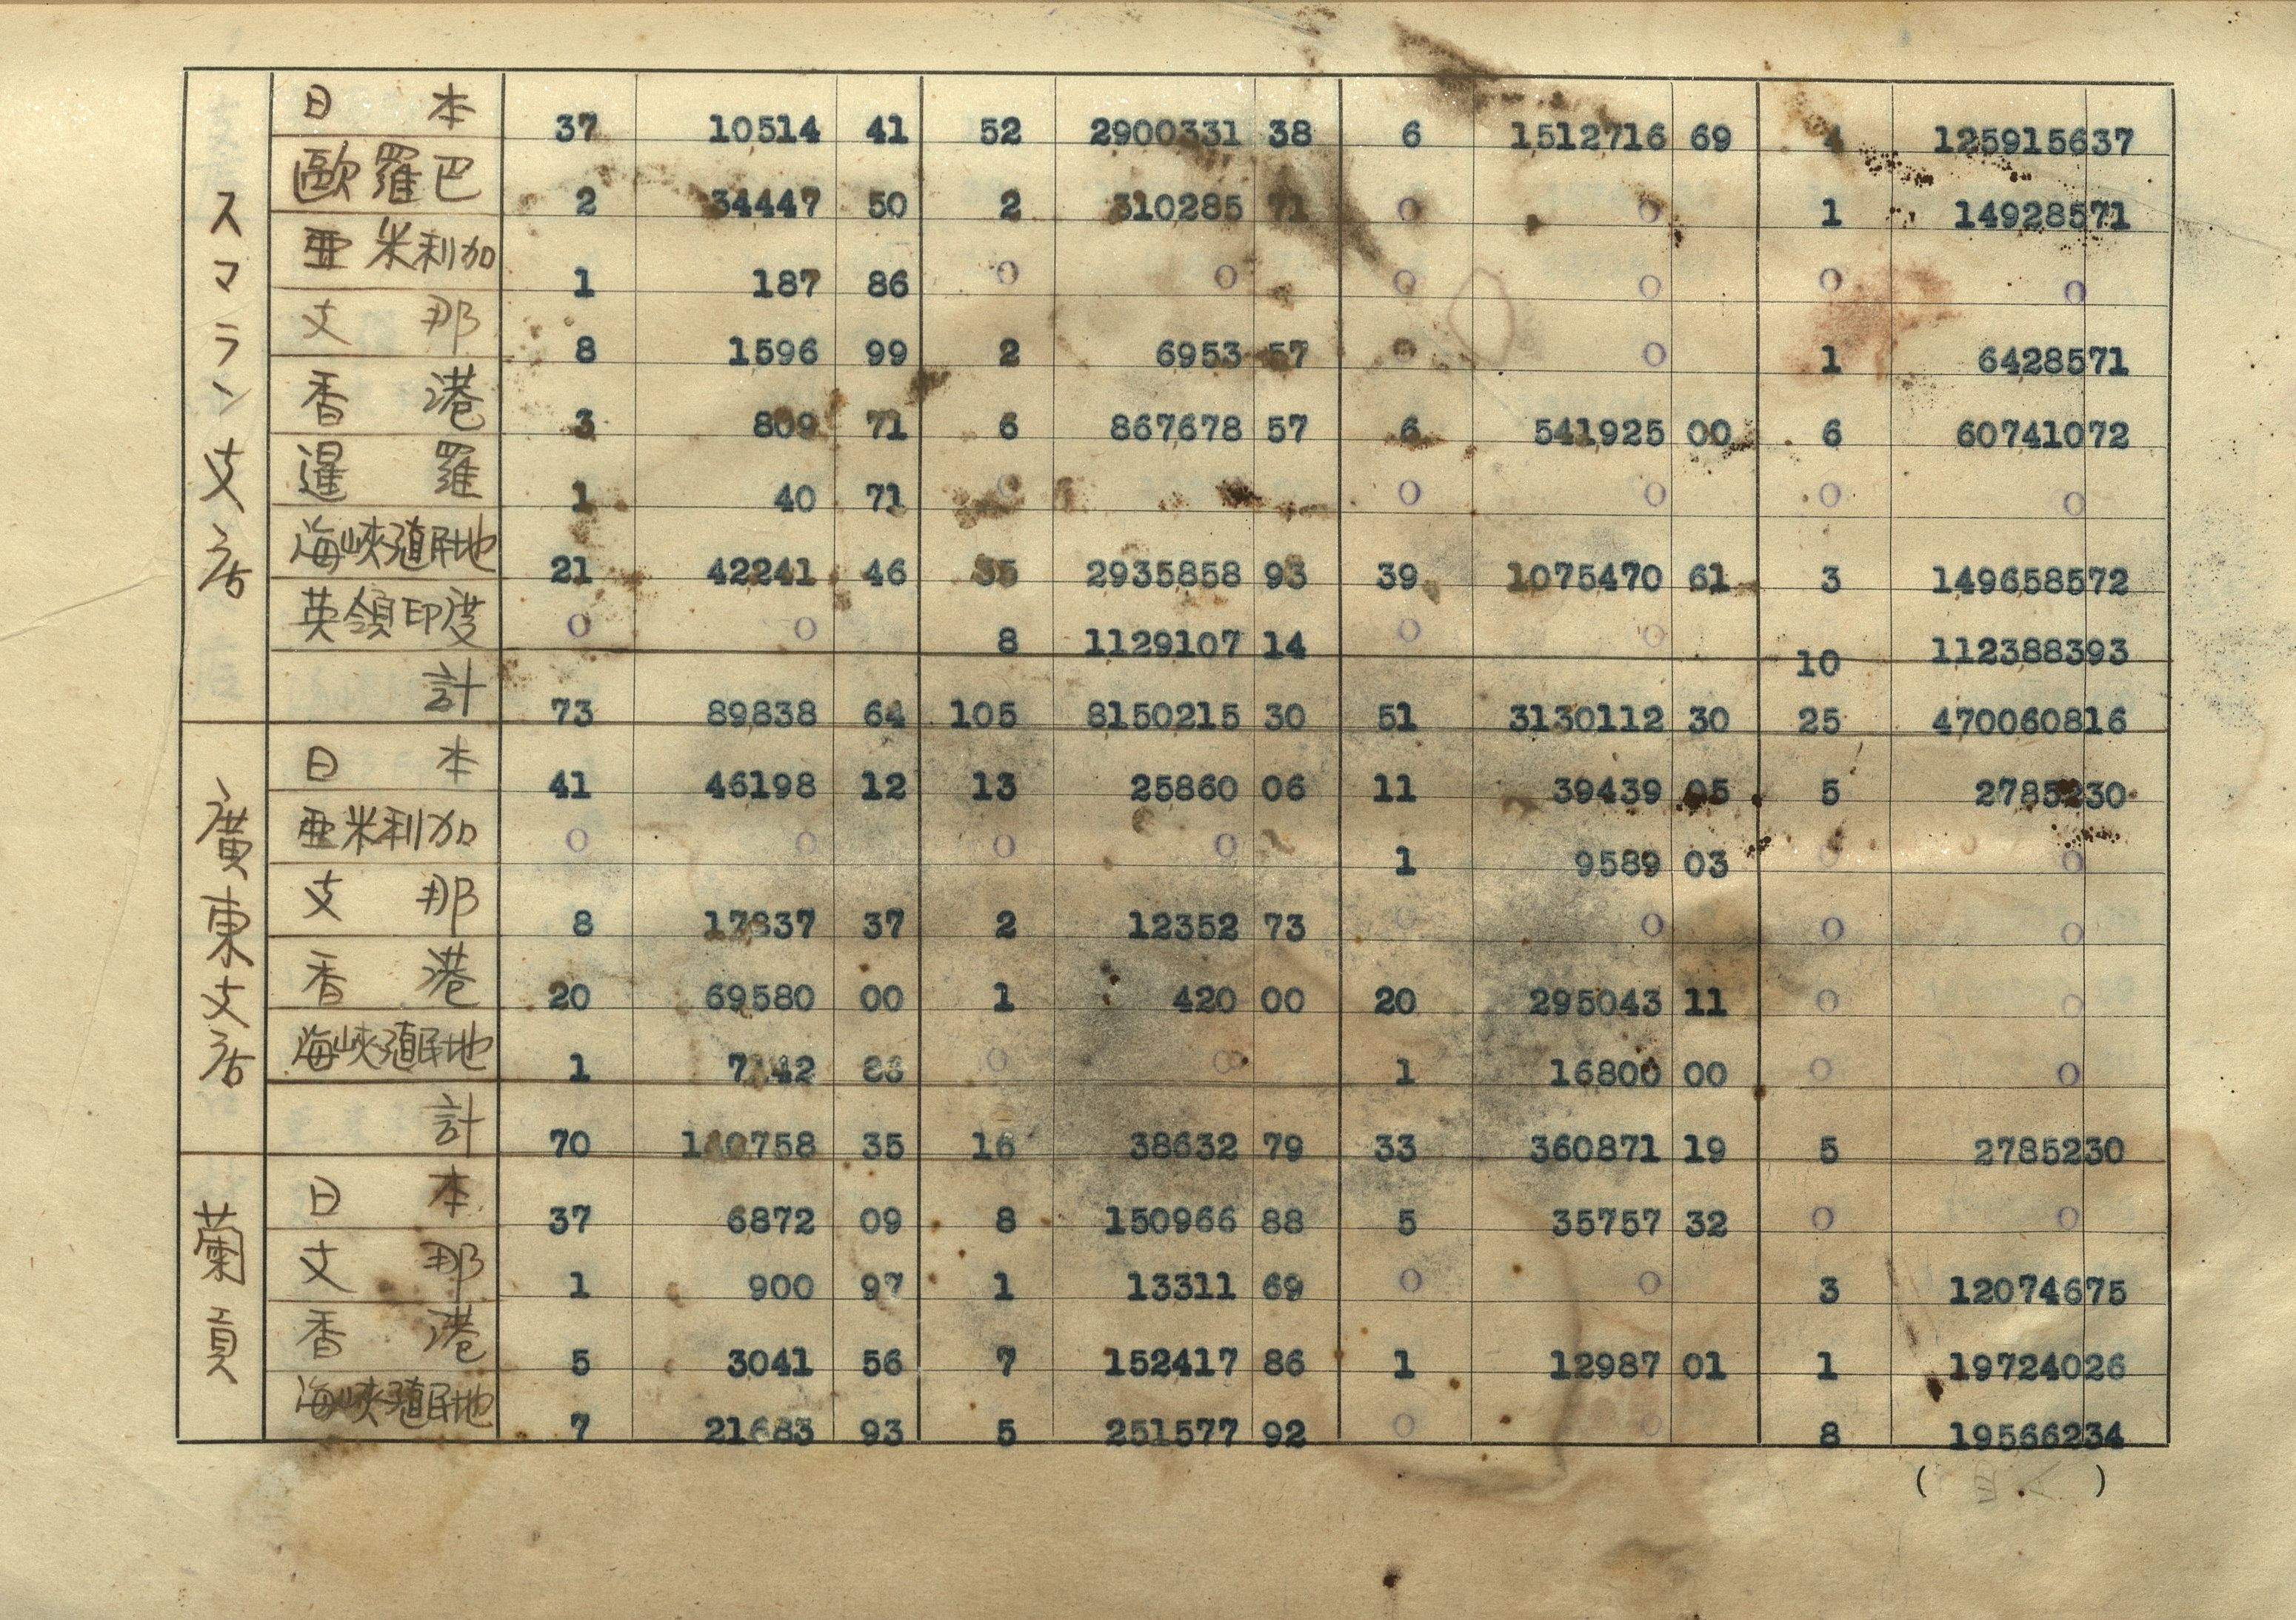 スマラン支店
日本 37 10514 41 52 2900331 38 6 1512716 69 4 125915637
歐羅巴 2 34447 50 2 310285 71 0 0 1 14928571
亜米利加 1 187 86 0 0 0 0 0 0
支那 8 1596 99 2 6953 57 0 0 1 6428571
香港 3 809 71 6 867678 57 6 541925 00 6 60741072
暹羅 1 40 71 0 0 0 0 0
海峽殖民地 21 42241 46 35 2935858 93 39 1075470 61 3 149658572
英領印度 0 0 8 1129107 14 0 0 10 112388393
計 73 89838 64 105 8150215 30 51 3130112 30 25 470060816
廣東支店
日本 41 46198 12 13 25860 06 11 39439 05 5 2785230
亜米利加 0 0 0 0 1 9589 03 0 0
支那 8 17837 37 2 12352 73 0 0 0 0
香港 20 69580 00 1 420 00 20 295043 11 0 0
海峽殖民地 1 0 0 1 16800 00 0 0
計 70 35 16 38632 79 33 360871 19 5 2785230
蘭貢
日本 37 6872 09 8 150966 88 5 35757 32 0 0
支那 1 900 97 1 13311 69 0 0 3 12074675
香港 5 3041 56 7 152417 86 1 12987 01 1 19724026
海峽殖民地 7 21683 93 5 251577 92 0 0 8 19566234